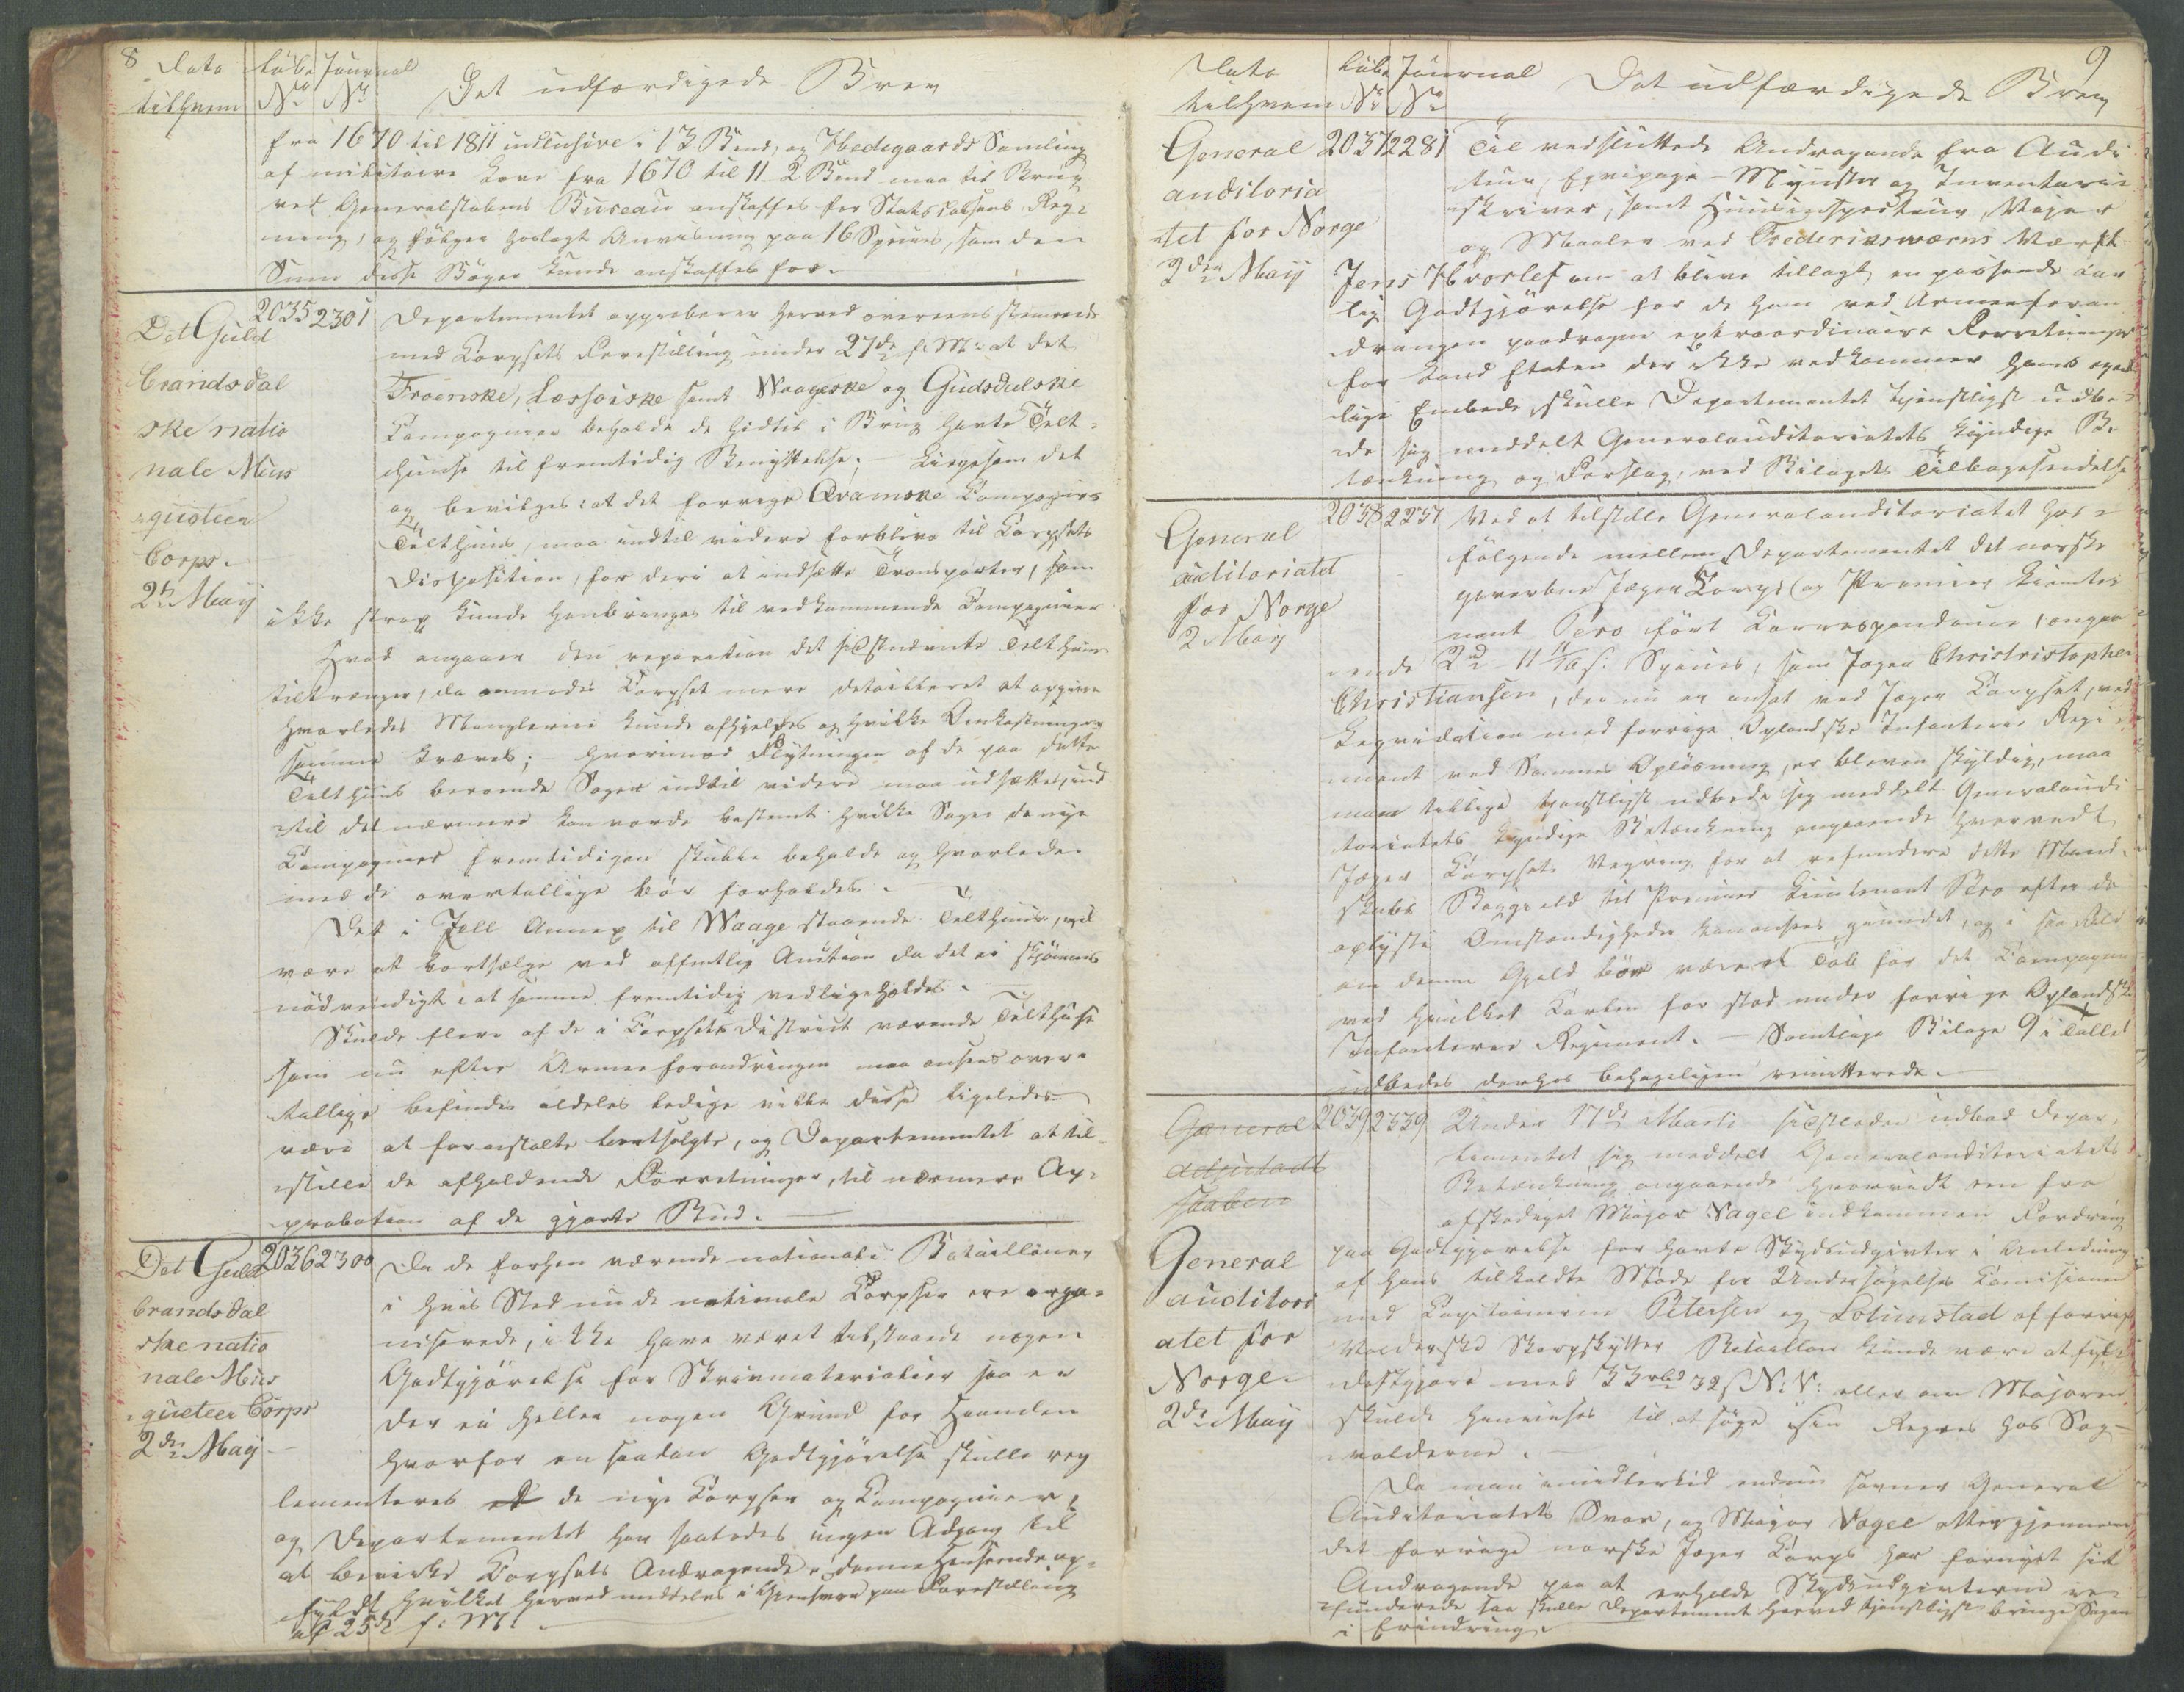 8 Dato Løbe Journal Det udfærdigede Brev
tilhvem No No
fra 1670 til 1811 inclusive i 13 Bind, og Hedegaards Samling
af militaire Love fra 1670 til 11 2 Bind maa til Brug
ved Generalstabens Bureau anskaffes for Statscassens Reg-
ning, og følger hoslagt Anvisning paa 16 Species, som den
Sum disse Bøger kunde anskaffes for.
Det Guld
brandsdal
ske natio
nale Mus
queteer
Corps.
2de May
2035 2301 Departementet approberer herved overeensstemmende
med Corpsets Forestilling under 27de f: M: at det
Froenske, Læssøiske samt Waageske og Gudsdalske
Compagnier beholde de hidtil i Brug havte Telt-
huuse til fremtidig Benyttelse; Ligesom det
og bevilges: at det forrige Qvamske Compagnies
Telthuus, maa indtil videre forblive til Corpsets
Disposition, for deri at indsætte Transporter, som
ikke strax kunde henbringes til vedkommende Compagnier
Hvad angaaer den reparation det sidstnævnte Telthuus
tiltrænger, da anmodes Corpset mere detailleret at opgive
hvorledes Manglerne kunde afhjelpes og hvilke Omkostninger
samme kræves; hvorimod Flytningen af de paa dette
Telthuus beroende Sager indtil videre maa udsættes, ind
til det nærmere kan vorde bestemt hvilke Sager de nye
Compagnier fremtidigen skulle beholde og hvorledes
med de overtallige bør forholdes.
Det i Jell Annex til Waage staaende Telthuus, vil
være at bortsælge ved offentlig Auction da det ei skjønnes
nødvendigt at samme fremtidig vedligeholdes.
Skulde flere af de i Corpsets District værende Telthuse
som nu efter Armeeforandringen maa ansees over-
tallige befindes aldeles ledige ville disse ligeledes
være at foranstalte bortsolgte, og Departementet at til-
stille de afholdende Forretninger, til nærmere Ap-
probation af de gjorte Bud.
Det Guld
brandsdal
ske natio
nale Mus
queteer Corps
2den May
2036 2300 Da de forhen værende nationale Batailloner
i hvis Sted nu de nationale Corpser ere orga-
niserede, ikke have været tilstaaede nogen
Godtgjørelse for Skrivmaterialier saa er
der ei heller nogen Grund for Haanden
hvorfor en saadan Godtgjørelse skulle reg
lementeres de nye Corpser og Compagnier,
og Departementet har saaledes ingen Adgang til
at bevirke Corpsets Andragende i denne Henseende op-
fyldt hvilket herved meddeles i Giensvar paa Forestilling
af 25de f: M:
Dato Løbe Journal Det udfærdigede Brev 9
tilhvem No No
General
auditoria
tet for Norge
2den May
2037 2281 Til vedsluttede Andragende fra Audi
teur, Eqvipage-Mynster og Inventarie
skriver, samt Huusinspecteur, Vejer
og Maaler ved Frederiksværns Værft
Jens Hvorlef om at blive tillagt en passende aar
lig Godtgjørelse for de ham ved Armeeforan
dringen paadragne extraordinaire Forretninger
for Land Etaten der ikke vedkommer hans egent
lige Embede, skulle Departementet tjenstligst udbe-
de sig meddelt Generalauditoriatets kyndige Be
tænkning og Forslag, ved Bilagets Tilbagesendelse
General
auditoriatet
for Norge
2 May
2038 2237 Ved at tilstille Generalauditoriatet hos-
følgende mellem Departementet det norske
gevorbne Jæger Corps og Premier Lieute
nant Pero ført Correspondance, angaa
ende 2rd 11 1/16 s. Species, som Jæger Christristopher
Christiansen, der nu er ansat ved Jæger Corpset, ved
Leqvidation med forrige Oplandske Infanterie Regi
ment ved Sammes Opløsning, er bleven skyldig, maa
man tillige tjenstligst udbede sig meddelt Generalaudi
toriatets kyndige Betænkning angaaende hvorvidt
Jæger Corpsets Vægring for at refundere dette Mand-
skabs Gjeld til Premier Lieutenant Pero efter de
oplyste Omstændigheder kan ansees grundet, og i saa Fald
om denne Gjeld bør være et Tab for det Compagnie
ved hvilket Karlen for stod under forrige Oplandske
Infanterie Regiment. — Samtlige Bilage 9 i Tallet
udbedes derhos behageligen remitterede.
General
adjutant
staben
General
auditori
atet for
Norge.
2de May
2039 2339 Under 17de Marti sidstleden udbad Depar-
tementet sig meddelt Generalauditoriatets
Betænkning angaaende hvorvidt en fra
afskediget Major Nagel indkommen Fordring
paa Godtgjørelse for havte Skydsudgivter i Anledning
af hans tilkaldte Møde for Undersøgelses Comissionen
med Capitainerne Petersen og Lolimstad af forrige
Valderske Skarpskytter Bataillon kunde være at fyld-
destgjøre med 33 rbd 32 s N: V: eller om Majoren
skulde henvises til at søge sin Regres hos Sag-
volderne.
Da man imidlertid endnu savner General
Auditoriatets Svar, og Major Nagel atter gjennem
det forrige norske Jæger Corps har fornyet sit
Andragende paa at erholde Skydsudgivterne re-
funderede saa skulle Departement herved tjenstligst bringe Sagen
i Erindring.